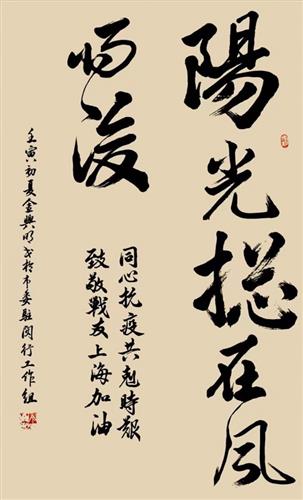 陽光摠在風
雨後
同心抗疫共剋時艱
致敬戰友上海加油
壬寅初夏金興明書於市委駐閔行工作組